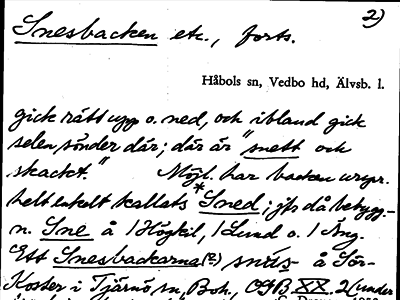 2)
Snesbacken etc., forts.
Håbols sn, Vedbo hd, Älvsb. l.
gick rätt upp o. ned, och ibland gick
selen sönder där; där är "snett och
skackt." Möjl. har backen urspr.
helt enkelt kallats *Sned; jfr då bebygg.-
n. Sne å 1 Högkil, 1 Lund o. 1 Äng.
Ett Snesbackarna(?) snås- å Sör-
Koster i Tjärnö sn, Boh., OGB XX. 2 (under